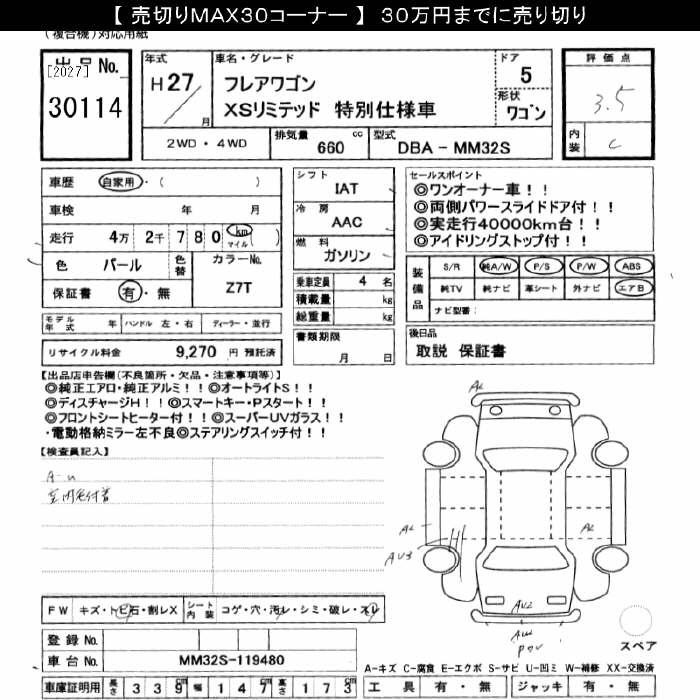 【 売切りMAX30コーナー 】 30万円までに売り切り
(複合機)対応用紙
出品No.
[2027]
30114
年式
H27/
月
車名・グレード
フレアワゴン
XSリミテッド 特別仕様車
ドア
5
形状
ワゴン
2WD・4WD
排気量 660 cc
型式 DBA - MM32S
評価点
3.5
内装 C
車歴 自家用・( )
車検 年 月
走行 4万 2千 780 km マイル ( )
色 パール 色替 カラーNo. Z7T
保証書 有・無
モデル年式 年 ハンドル 左・右 ディーラー・並行
リサイクル料金 9,270 円 預託済
シフト
IAT
冷房
AAC
燃料
ガソリン
乗車定員 4 名
積載量 kg
総重量 kg
書類期限
月 日
セールスポイント
◎ワンオーナー車！！
◎両側パワースライドドア付！！
◎実走行40000km台！！
◎アイドリングストップ付！！
装備品
S/R 純A/W P/S P/W ABS
純TV 純ナビ 革シート 外ナビ エアB
ナビ型番：
後日品
取説 保証書
【出品店申告欄(不良箇所・欠品・注意事項等)】
◎純正エアロ・純正アルミ！！◎オートライトS！！
◎ディスチャージH！！◎スマートキー・Pスタート！！
◎フロントシートヒーター付！！◎スーパーUVガラス！！
・電動格納ミラー左不良◎ステアリングスイッチ付！！
【検査員記入】
FW キズ・トビ石・割レX シート内装 コゲ・穴・汚レ・シミ・破レ・スレ
登録No.
車台No. MM32S-119480
車庫証明用 長さ 339cm 幅 147cm 高さ 173cm
スペア
A-キズ C-腐食 E-エクボ S-サビ U-凹ミ W-補修 XX-交換済
工具 有・無 ジャッキ 有・無